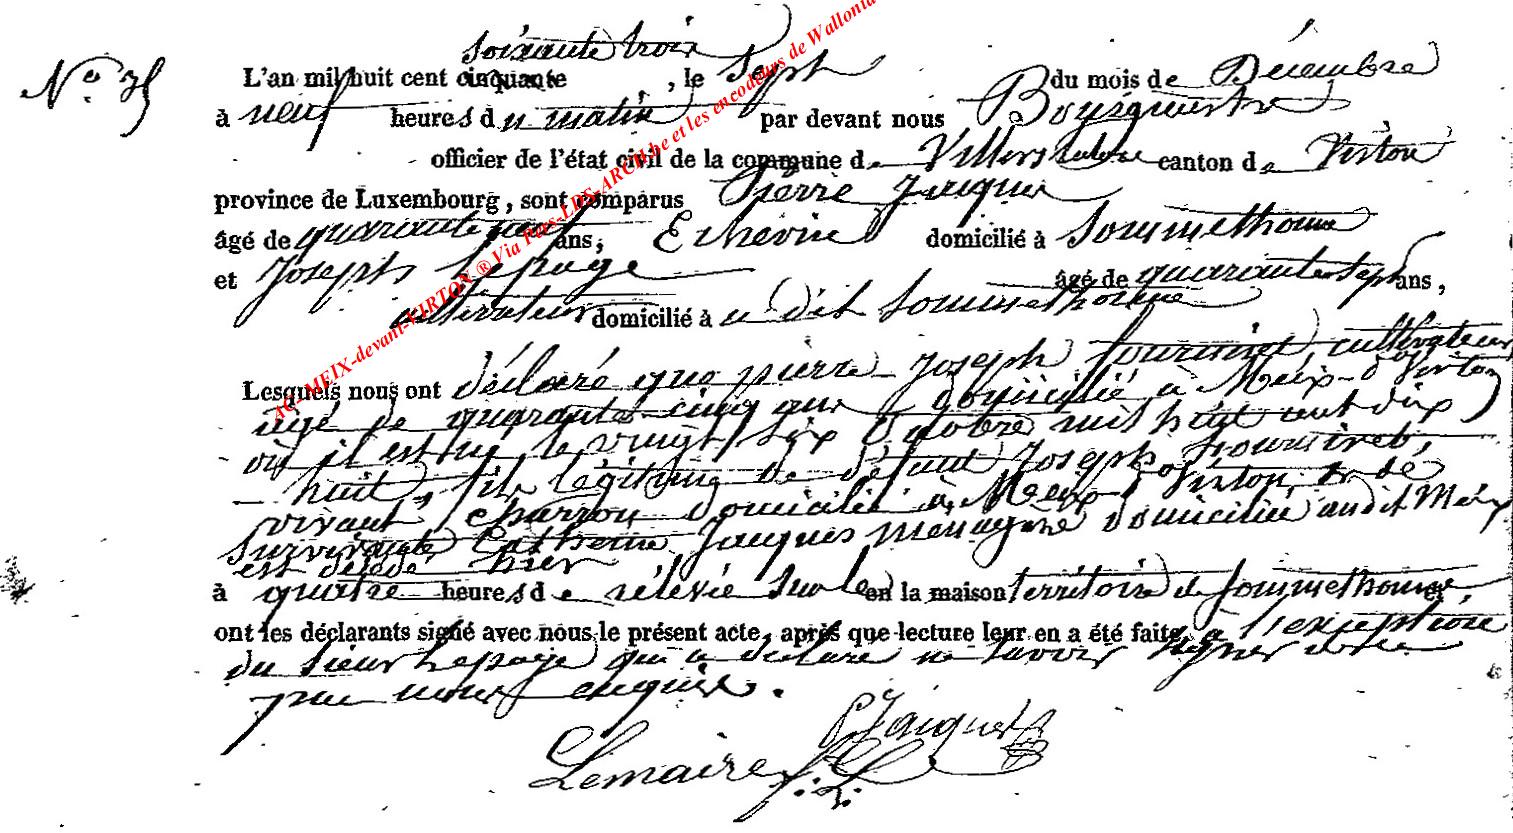 soixante trois
N° 35 L'an mil huit cent cinquante , le Sept du mois de Décembre
à neuf heures du matin par devant nous Bourguerstre
officier de l'état civil de la commune de Villers canton de Virton
province de Luxembourg, sont comparus Pierre Jacques
âgé de quarante neuf ans, Echevin domicilié à Sommethonne
et Joseph Lepage âgé de quarante sept ans,
cultivateur domicilié à u dit Sommethonne
Lesquels nous ont déclaré que pierre Joseph cultivateur
âgé de quarante-cinq ans domicilié à Meix-d Virton
où il est né le vingt six Octobre mil huit cent dix
huit, fils légitime de défunt Joseph
vivant charron domicilié à Meix-d Virton et de
survivante Catherine Jacques ménagère domiciliée audit Meix
est décédé hier
à quatre heures de rélevée sur le en la maison territoire de Sommethonne, et
ont les déclarants signé avec nous le présent acte, après que lecture leur en a été faite, à l'exception
du sieur Lepage qui a déclaré ne savoir signer de ce
par nous enquis.
PJacques
Lemaire
AC-MEIX-devant-VIRTON ® Via Pars-LDS-ARCH.be et les encodeurs de Wallonia